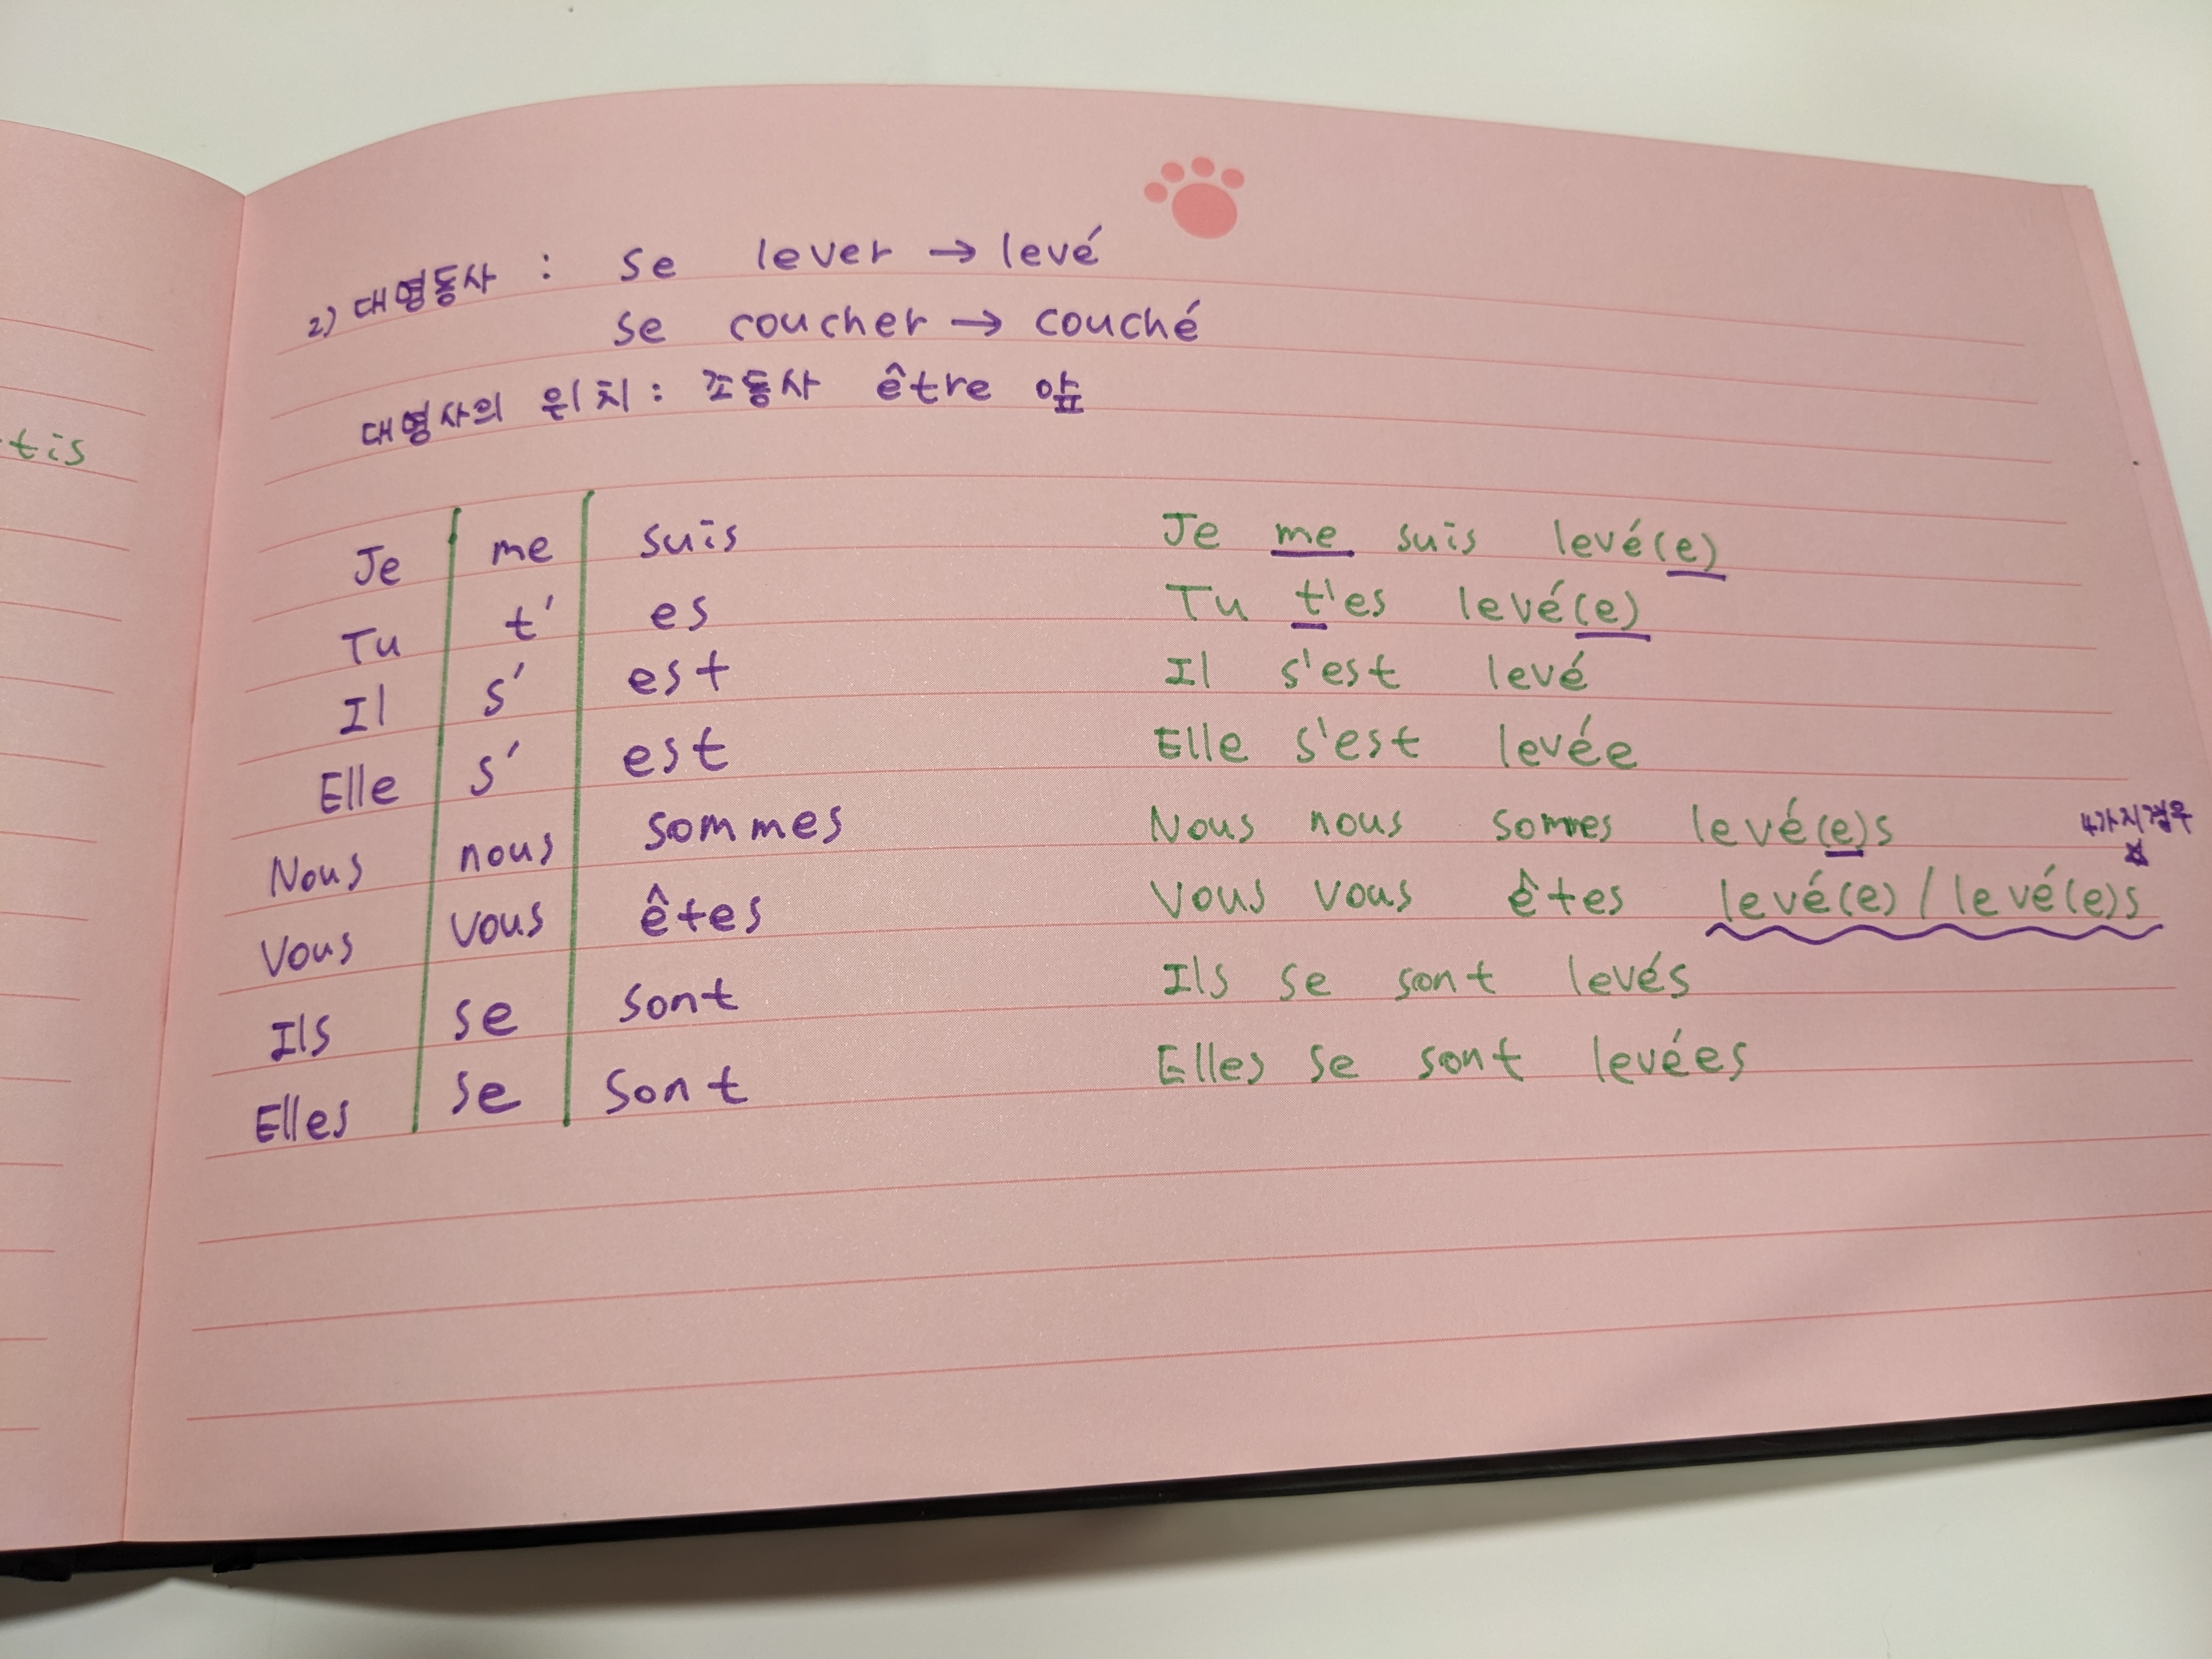 tis
2) 대명동사 : se lever → levé
se coucher → couché
대명사의 위치 : 조동사 être 앞
Je me suis
Tu t' es
Il s' est
Elle s' est
Nous nous sommes
Vous vous êtes
Ils se sont
Elles se sont
Je me suis levé(e)
Tu t'es levé(e)
Il s'est levé
Elle s'est levée
Nous nous sommes levé(e)s
4가지 경우
Vous vous êtes levé(e) / levé(e)s
Ils se sont levés
Elles se sont levées